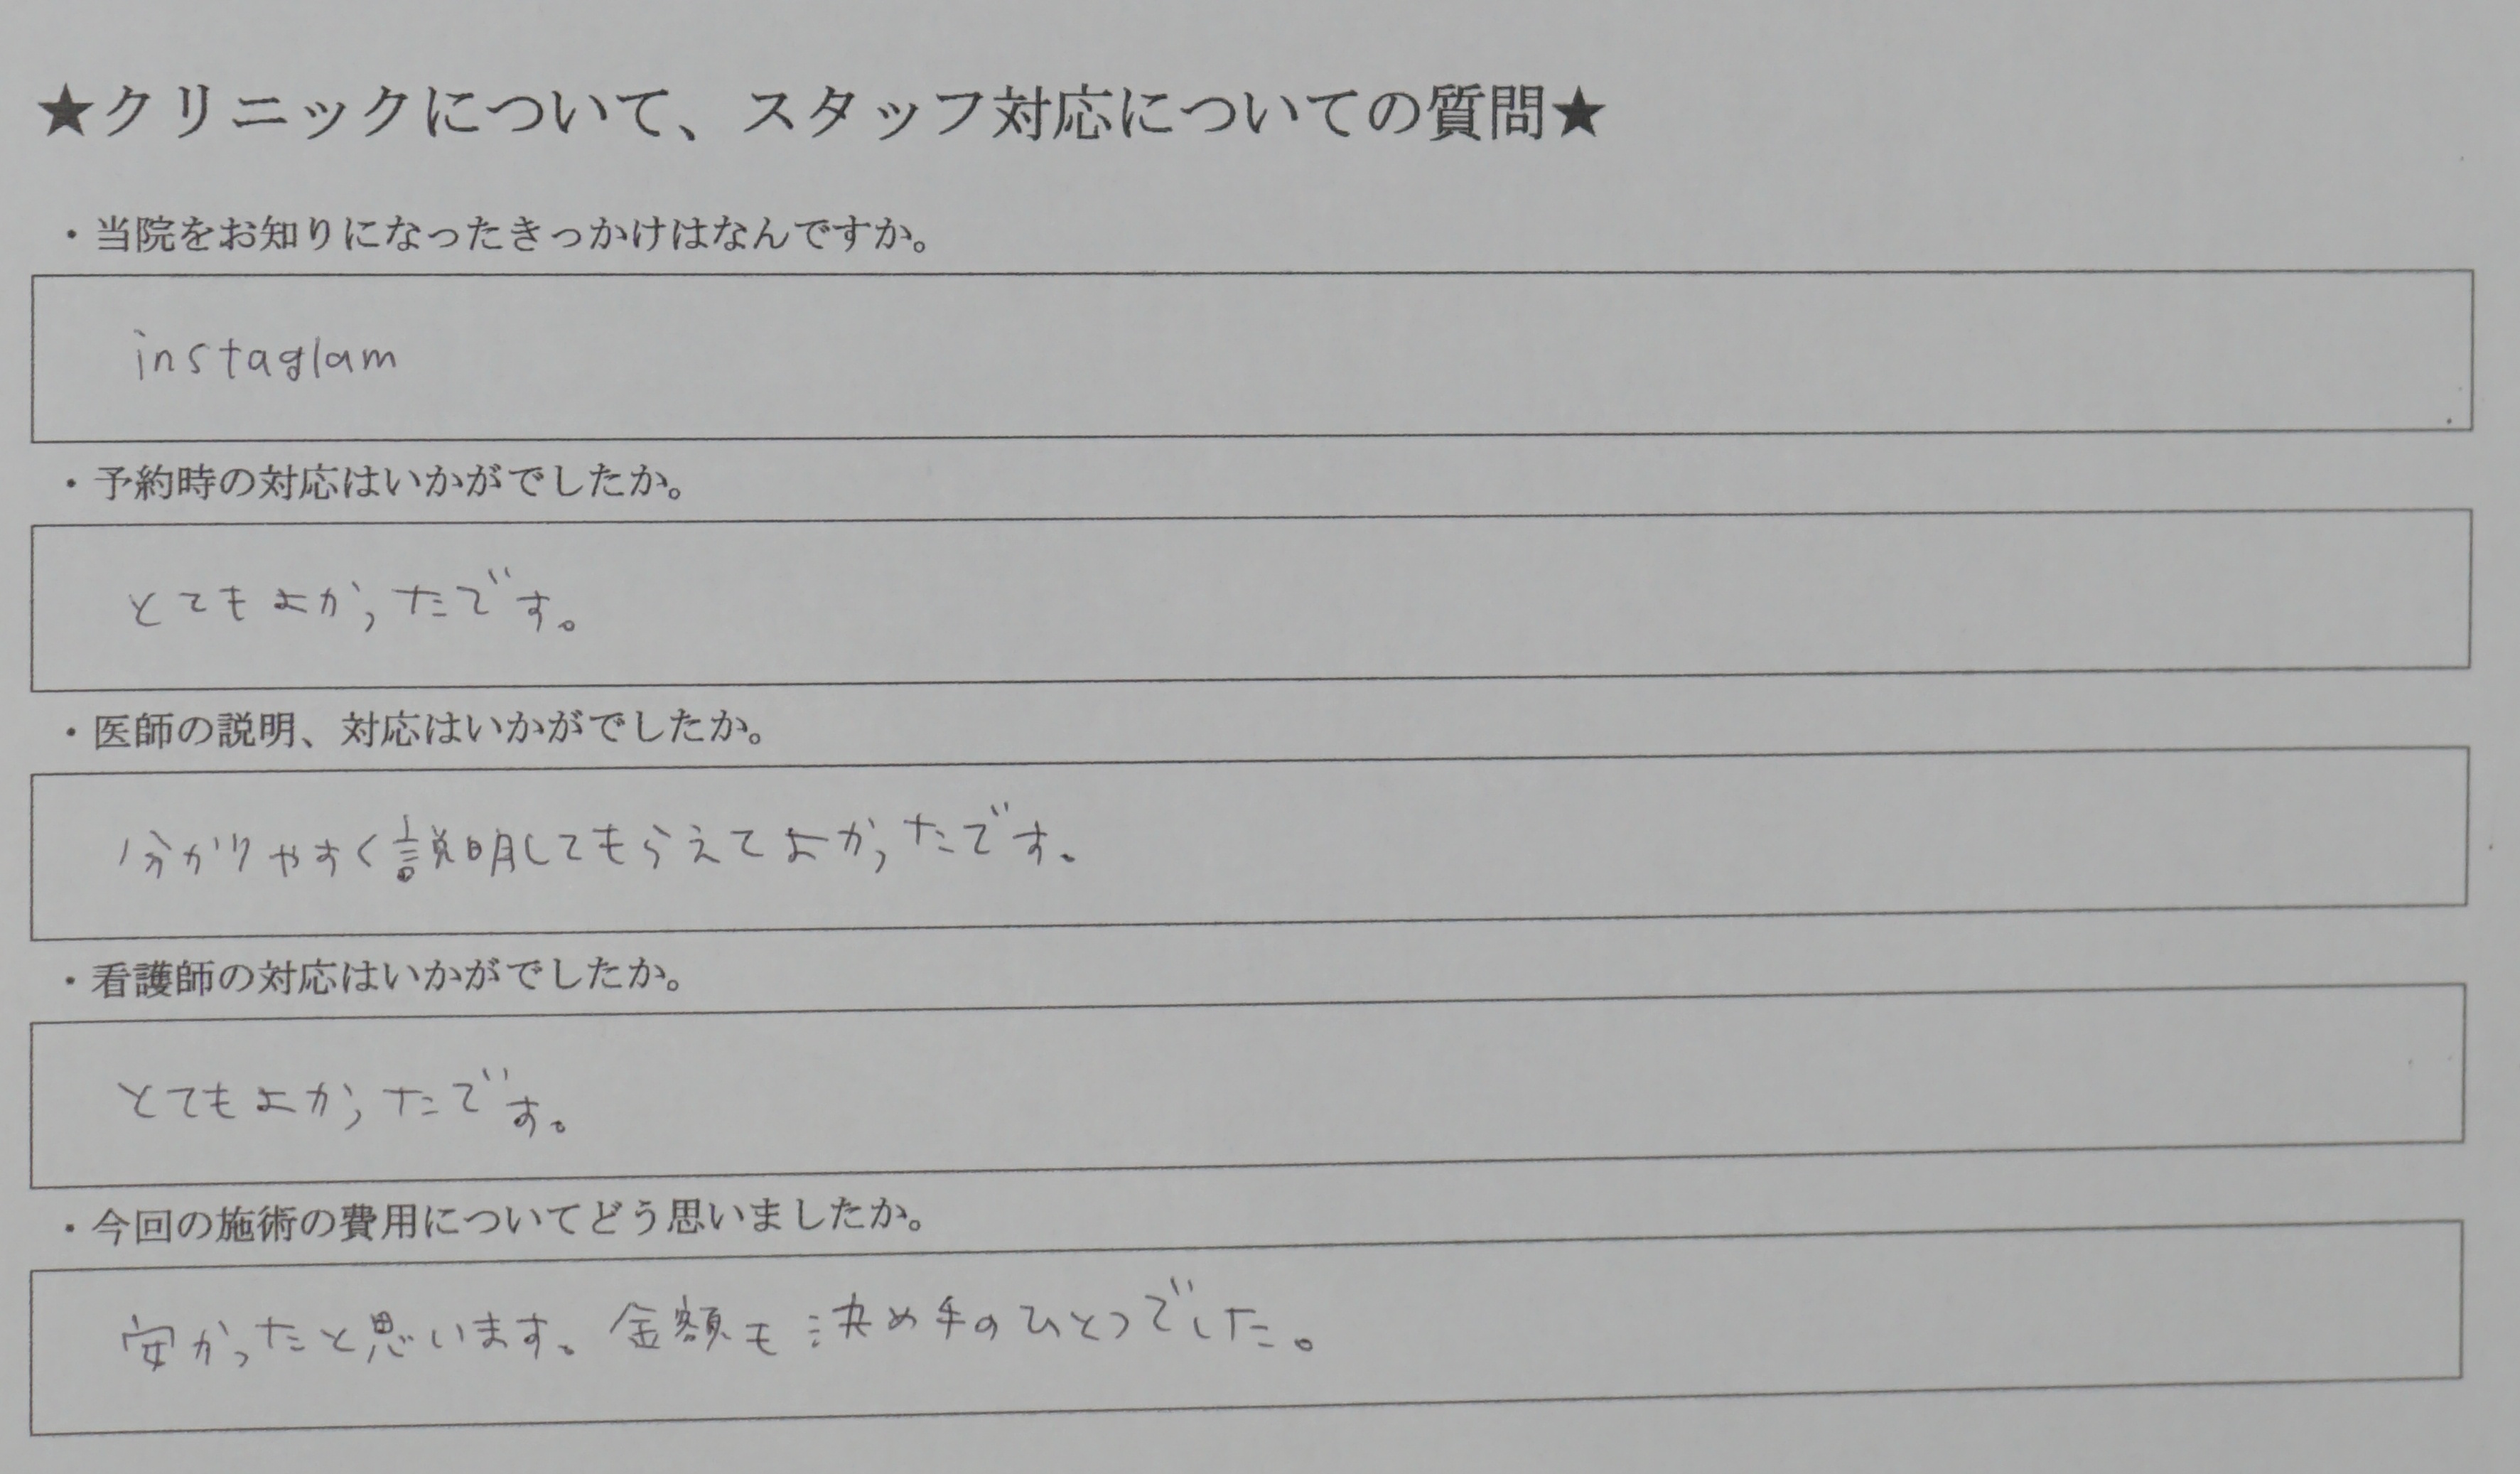 ★クリニックについて、スタッフ対応についての質問★
・当院をお知りになったきっかけはなんですか。
instaglam
・予約時の対応はいかがでしたか。
とてもよかったです。
・医師の説明、対応はいかがでしたか。
分かりやすく説明してもらえてよかったです。
・看護師の対応はいかがでしたか。
とてもよかったです。
・今回の施術の費用についてどう思いましたか。
安かったと思います。金額も決め手のひとつでした。